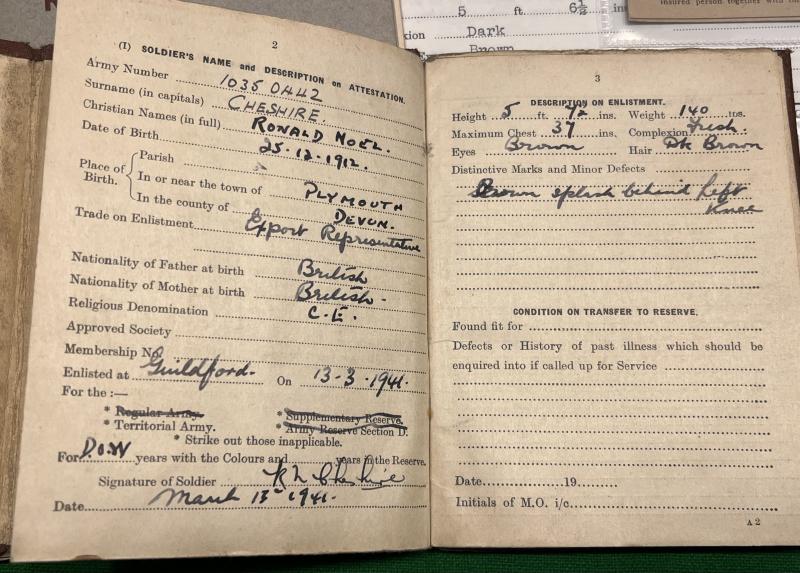 5 ft. 6½
Dark
Brown
insured person together with
2
(I) SOLDIER'S NAME and DESCRIPTION on ATTESTATION.
Army Number 10350442
Surname (in capitals) CHESHIRE.
Christian Names (in full) RONALD NOEL.
Date of Birth 25.12.1912.
Place of Birth.
Parish
In or near the town of PLYMOUTH
In the county of DEVON.
Trade on Enlistment Export Representative
Nationality of Father at birth British
Nationality of Mother at birth British.
Religious Denomination C.E.
Approved Society
Membership No.
Enlisted at Guildford. On 13-3-1941.
For the :—
* Regular Army. * Supplementary Reserve.
* Territorial Army. * Army Reserve Section D.
* Strike out those inapplicable.
For D.O.W years with the Colours and years in the Reserve.
Signature of Soldier R N Cheshire
Date March 13th 1941.
3
DESCRIPTION ON ENLISTMENT.
Height 5 ft. 7½ ins. Weight 140 lbs.
Maximum Chest 37 ins. Complexion Fresh.
Eyes Brown Hair Dk Brown
Distinctive Marks and Minor Defects
Brown splash behind Left
Knee
CONDITION ON TRANSFER TO RESERVE.
Found fit for
Defects or History of past illness which should be
enquired into if called up for Service
Date 19
Initials of M.O. i/c
A 2